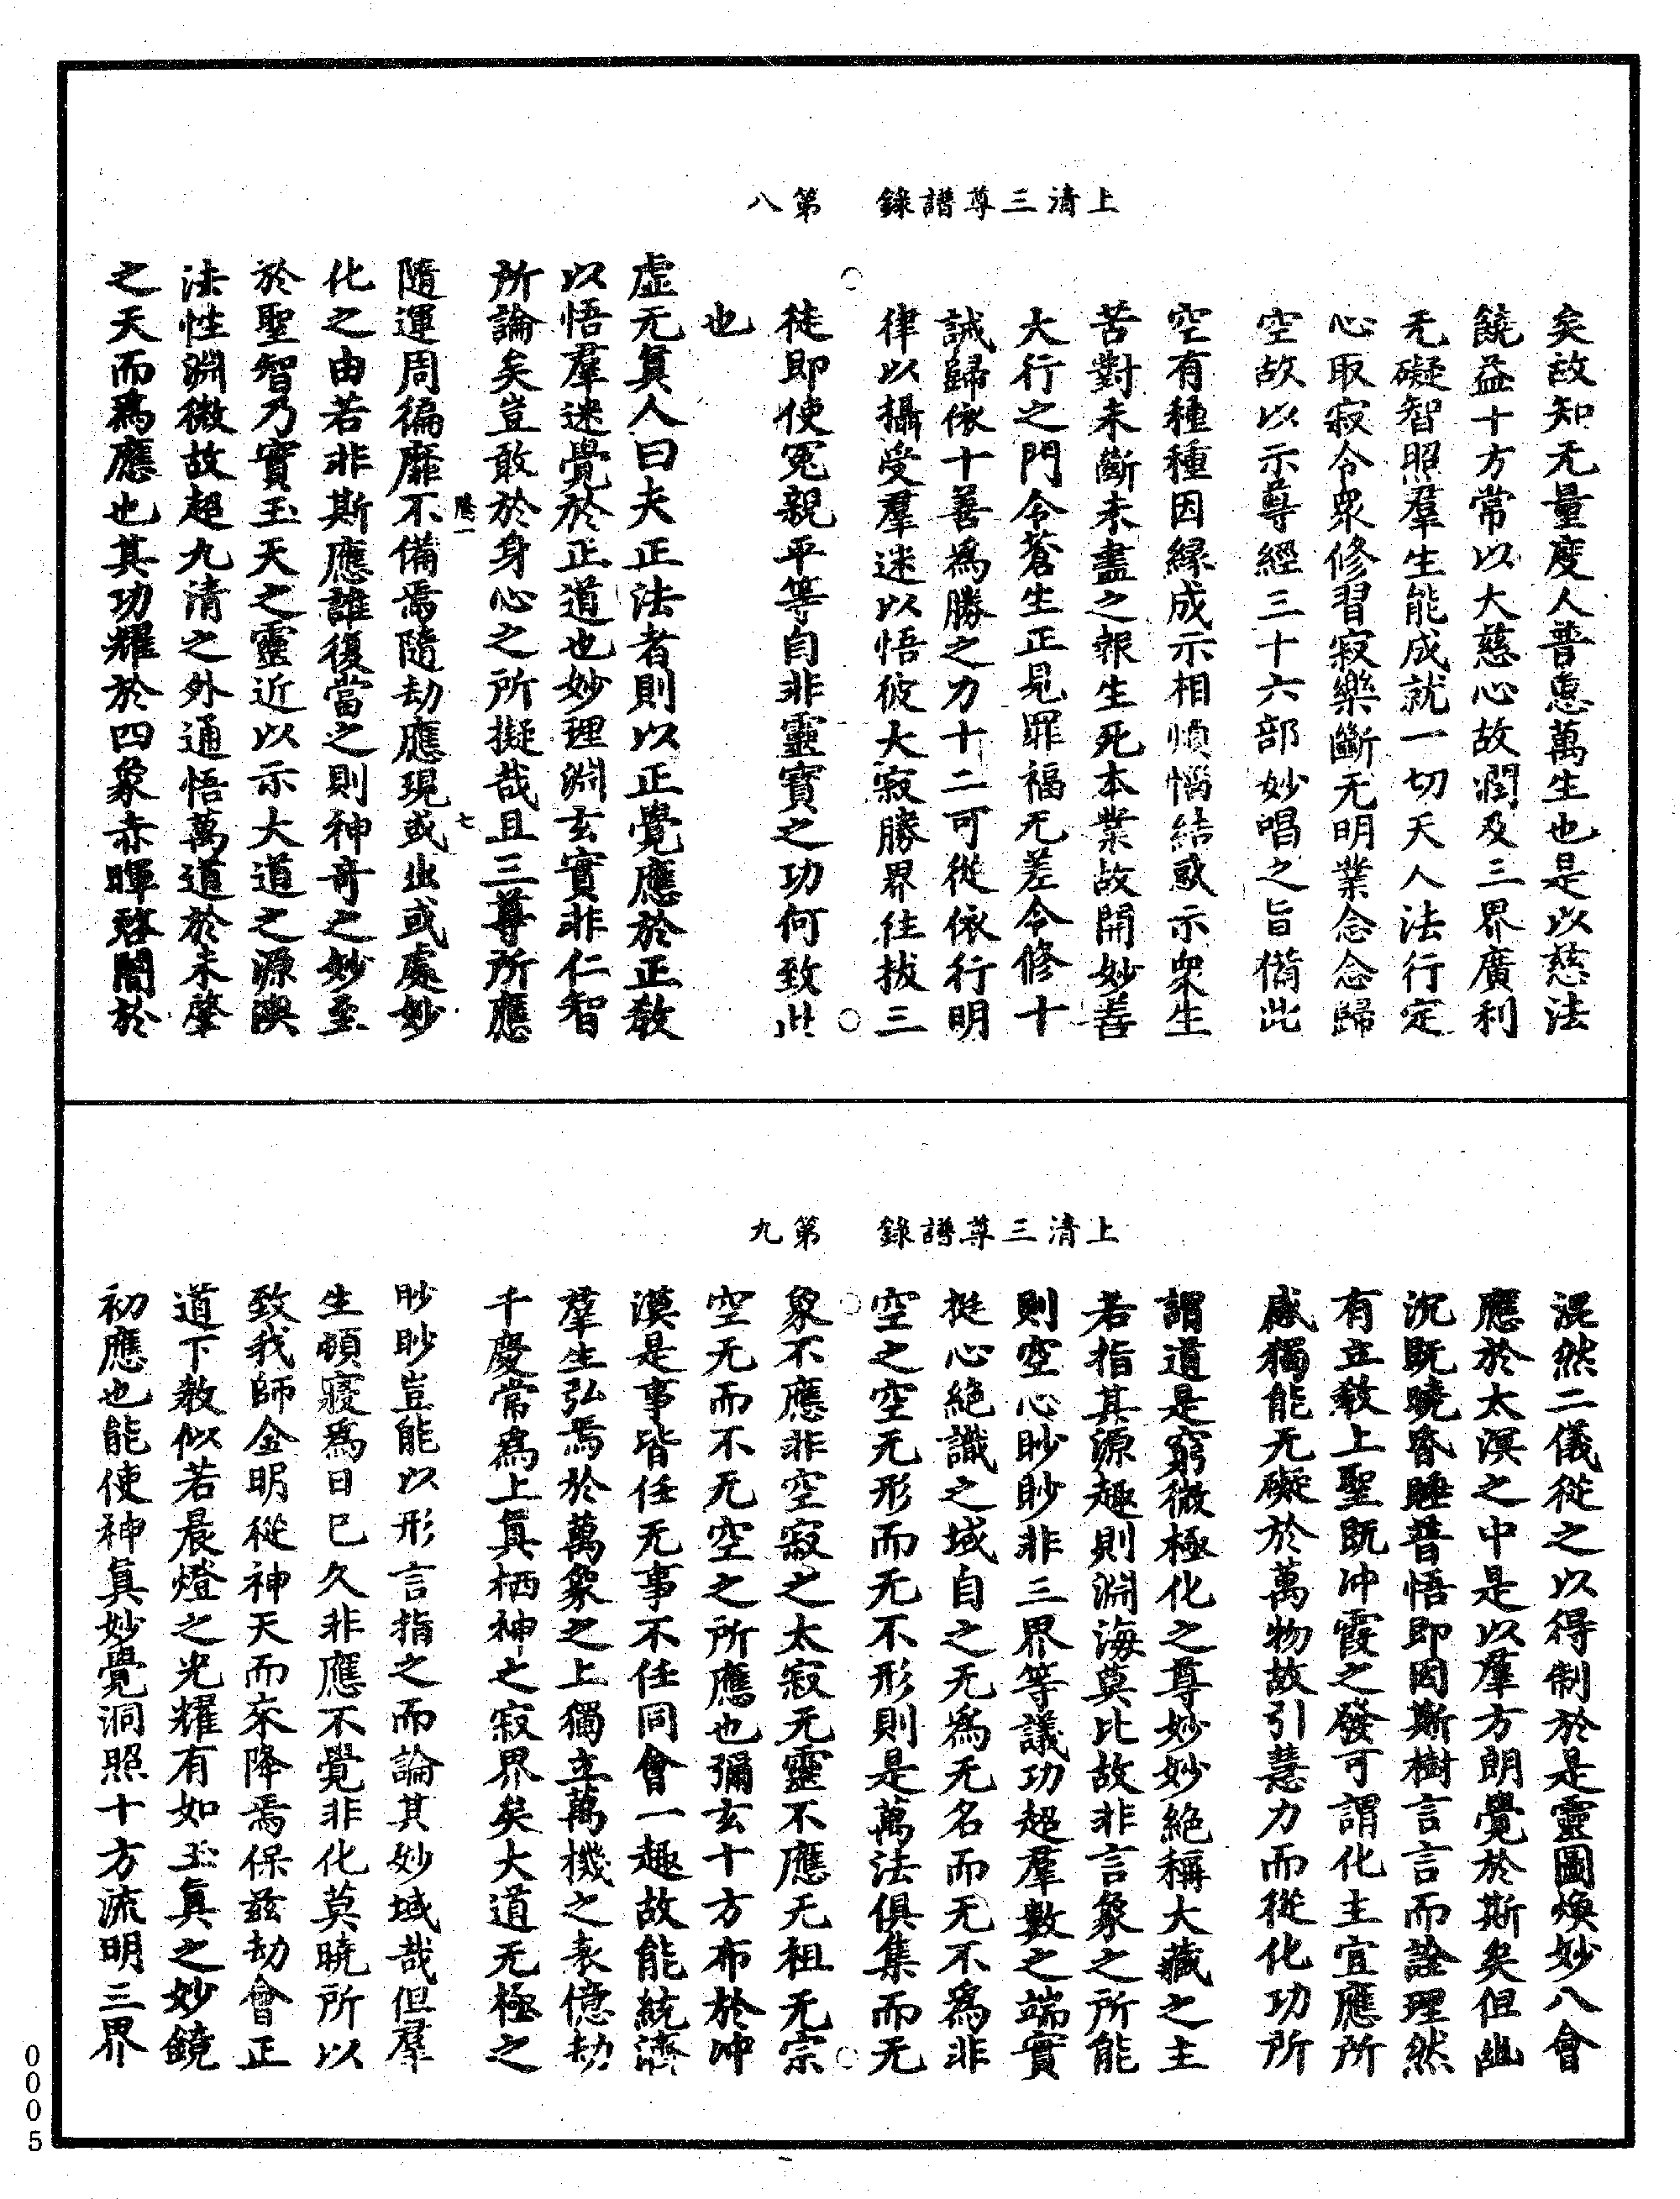 上清三尊譜錄　第八
矣故知无量度人普惠萬生也是以慈法
饒益十方常以大慈心故潤及三界廣利
无礙智照羣生能成就一切天人法行定
心取寂令衆修習寂樂斷无明業念念歸
空故以示尊經三十六部妙唱之旨備此
空有種種因緣成示相煩惱結惑示衆生
苦對未斷未盡之報生死本業故開妙善
大行之門令蒼生正見罪福无差令修十
誡歸依十善爲勝之力十二可從依行明
律以攝受羣迷以悟彼大寂勝界往拔三
徒即使冤親平等自非靈寶之功何致此
也
虛无眞人曰夫正法者則以正覺應於正教
以悟羣迷覺於正道也妙理淵玄實非仁智
所論矣豈敢於身心之所擬哉且三尊所應
隨運周徧靡不備焉隨劫應現或出或處妙
化之由若非斯應誰復當之則神奇之妙至
於聖智乃寶玉天之靈近以示大道之源澳
法性淵微故超九清之外通悟萬道於未肇
之天而爲應也其功耀於四象赤暉啓闇於
上清三尊譜錄　第九
混然二儀從之以得制於是靈圖煥妙八會
應於太溟之中是以羣方朗覺於斯矣但幽
沉既曉昏睡普悟即因斯樹言言而詮理然
有立教上聖既冲霞之發可謂化主宜應所
感獨能无礙於萬物故引慧力而從化功所
謂道是窮微極化之尊妙妙絶稱大藏之主
若指其源趣則淵海莫比故非言象之所能
則空心眇眇非三界等議功超羣數之端實
挺心絶識之域自之无爲无名而无不爲非
空之空无形而无不形則是萬法俱集而无
象不應非空寂之太寂无靈不應无祖无宗
空无而不无空之所應也彌玄十方布於冲
漠是事皆任无事不任同會一趣故能統濟
羣生弘焉於萬象之上獨立萬機之表億劫
千慶常爲上眞栖神之寂界矣大道无極之
眇眇豈能以形言指之而論其妙域哉但羣
生頓寢爲日已久非應不覺非化莫曉所以
致我師金明從神天而來降焉保兹劫會正
道下教似若晨燈之光耀有如玉眞之妙鏡
初應也能使神眞妙覺洞照十方流明三界
0005